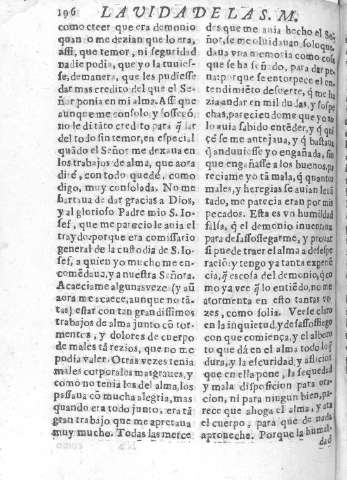 196 LA VIDA DE LA S. M.
como creer que era demonio
quan o me dezian que lo era,
assi, que temor, ni seguridad
nadie podia, que yo la tuuies-
se, demanera, que les pudiesse
dar mas credito del que el Se-
ñor ponia en mi alma. Assi que
aunque me consolò y sossegò,
no le di tãto credito para q̃ ſ
del todo sin temor, en especial
quãdo el Señor me dexaua en
los trabajos de alma, que aora
dirè, con todo quedè, como
digo, muy consolada. No me
hartaua de dar gracias a Dios,
y al glorioso Padre mio S. Io-
sef, que me pareciò le auia el
traydo, porque era comissario
general de la custodia de S. Io-
sef, a quien yo mucho me en-
comẽdaua, y a nuestra Señora.
Acaeciame algunas vezes (y aũ
aora me acaece, aunque no tã-
tas) estar con tan grandissimos
trabajos de alma junto cõ tor-
mentos, y dolores de cuerpo
de males tã rezios, que no me
podia valer. Otras vezes tenia
males corporales mas graues, y
como no tenia los del alma, los
passaua cõ mucha alegria, mas
quando era todo junto, era tã
gran trabajo que me apretaua
muy mucho. Todas las merce
des que me auia hecho el Se-
ñor, se me oluidauan, solo que-
daua vna memoria como cosa
que se ha soñado, para dar pe-
na: porque se entorpece el en-
tendimiẽto de suerte, q̃ me ha-
zia andar en mil dudas, y sospe-
chas, pareciendome que yo no
lo auia sabido entẽder, y q̃ qui
çà se me antojaua, y q̃ bastaua
q̃ anduuiesse yo engañada, sin
que engañasse a los buenos, pa
reciame yo tã mala, q̃ quantos
males, y heregias se auian leuã
tado, me parecia eran por mis
pecados. Esta es vn humildad
falsa, q̃ el demonio inuentaua
para desassossegarme, y prouar
si puede traer el alma a desespe-
racion: y tengo ya tanta experiẽ
cia, q̃ es cosa del demonio, q̃ co
mo ya vee q̃ lo entiẽdo, no me
atormenta en esto tantas ve-
zes, como solia. Veese claro
en la inquietud, y desassossiego
con que comiença, y el alboro
to que dà en el alma todo lo q̃
dura, y la escuridad, y aflicion
que en ella pone, la sequedad
y mala disposicion para ora-
cion, ni para ningun bien, pa-
rece que ahoga el alma, y ata
el cuerpo, para que de nada
aproueche. Porque la humil-
dad